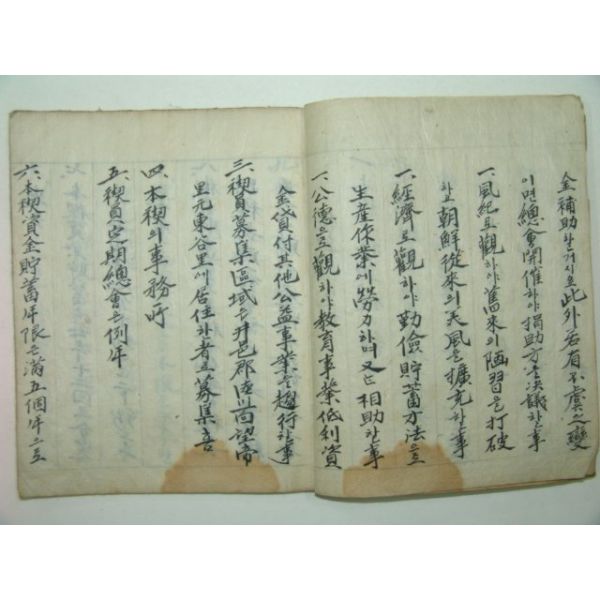 金補助할거시로此外若有不虞之變
이면總會開催하야捐助方을決議할事
一、風紀로觀하야舊來의陋習을打破
하고朝鮮從來의美風을擴充할事
一、經濟로觀하야勤儉貯蓄方法으로
生産作業에勞力하며又는相助할事
一、公德으로觀하야敎育事業低利資
金貸付其他公益事業을趨行할事
三、稧員募集區域은井邑郡德川面望帝
里元東谷里에居住하者로募集홈
四、本稧의事務所
五、稧員定期總會는例年
六、本稧資金貯蓄年限은滿五個年으로